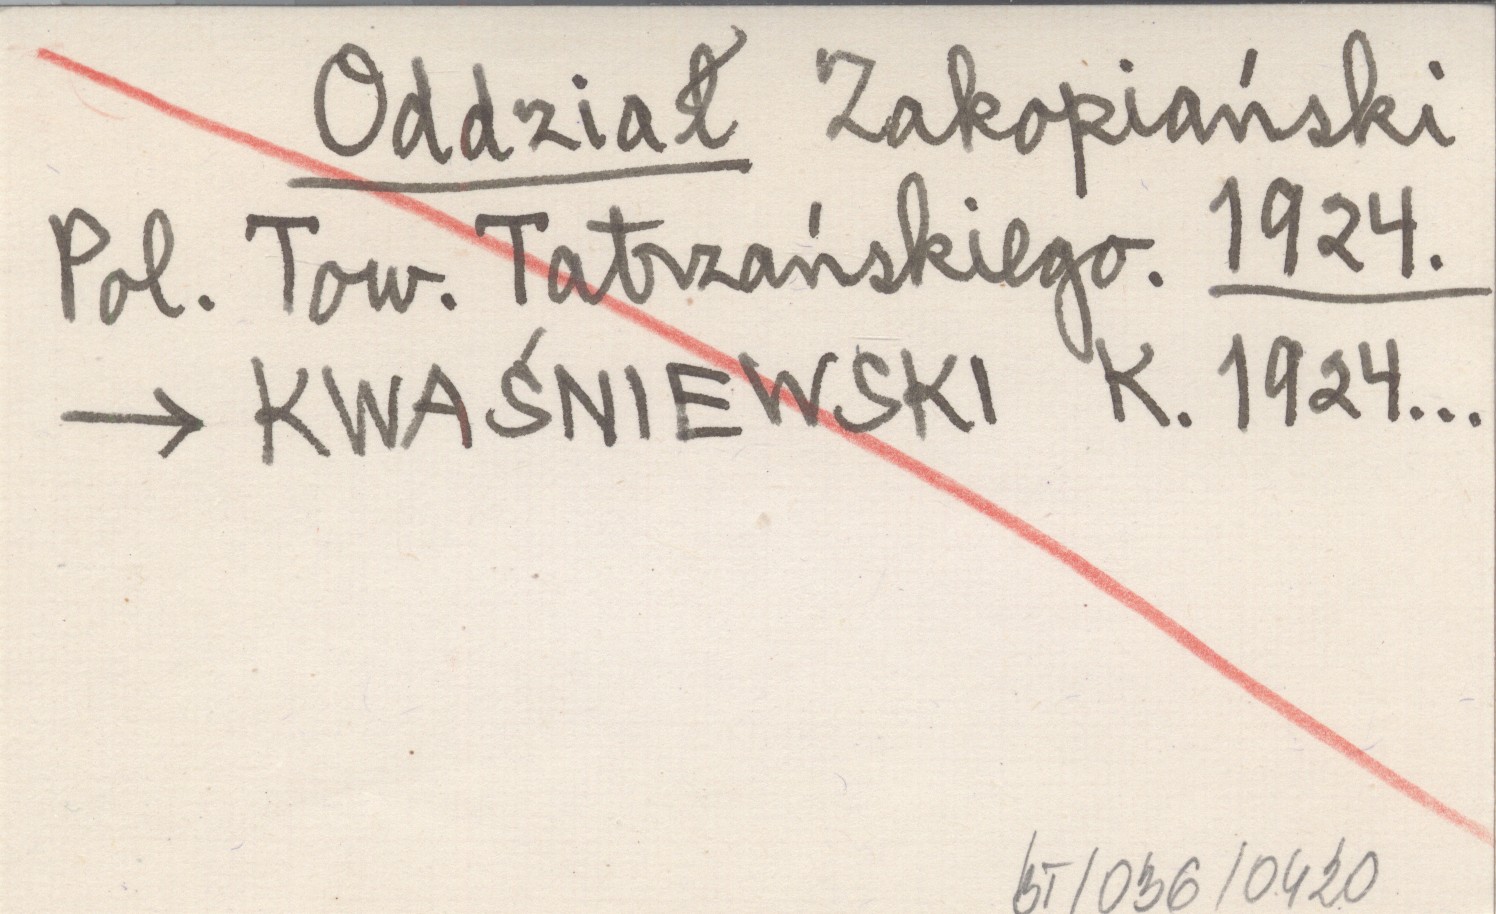 Oddział Zakopiański
Pol. Tow. Tatrzańskiego. 1924.
→ KWAŚNIEWSKI K. 1924...
BT/036/0420